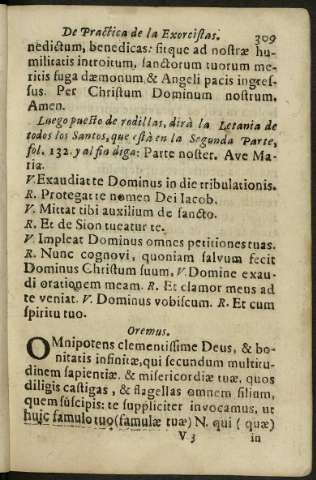 De Practica de la Exorcistas. 309
nedictum, benedicas: sitque ad nostræ hu-
militatis introitum, sanctorum tuorum me-
ritis fuga dæmonum & Angeli pacis ingres-
sus. Per Christum Dominum nostrum.
Amen.
Luego puesto de rodillas, dirà la Letania de
todos los Santos, que està en la Segunda Parte,
fol. 132. y al fin diga: Parte noster. Ave Ma-
ria.
V. Exaudiat te Dominus in die tribulationis.
R. Protegat te nomen Dei Iacob.
V. Mittat tibi auxilium de sancto.
R. Et de Sion tueatur te.
V. Impleat Dominus omnes petitiones tuas.
R. Nunc cognovi, quoniam salvum fecit
Dominus Christum suum. V. Domine exau-
di orationem meam. R. Et clamor meus ad
te veniat. V. Dominus vobiscum. R. Et cum
spiritu tuo.
Oremus.
OMnipotens clementissime Deus, & bo-
nitatis infinitæ, qui secundum multitu-
dinem sapientiæ, & misericordiæ tuæ, quos
diligis castigas, & flagellas omnem filium,
quem suscipis: te suppliciter invocamus, ut
huic famulo tuo (famulæ tuæ) N. qui (quæ)
V 3 in